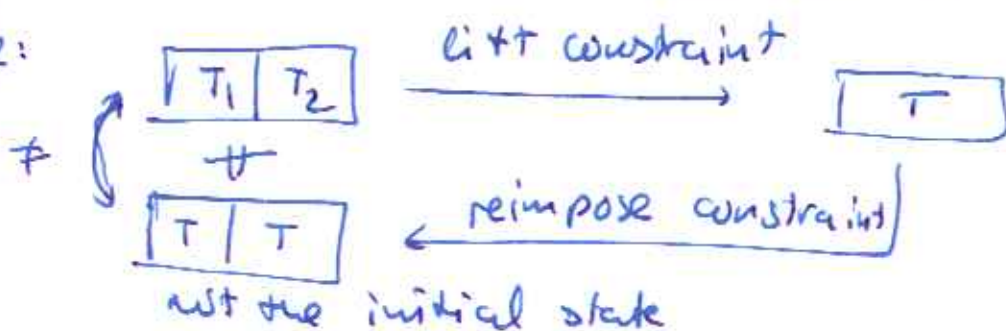 2:
T₁ T₂ lift constraint T
≠ ≠
T T reimpose constraint
not the initial state